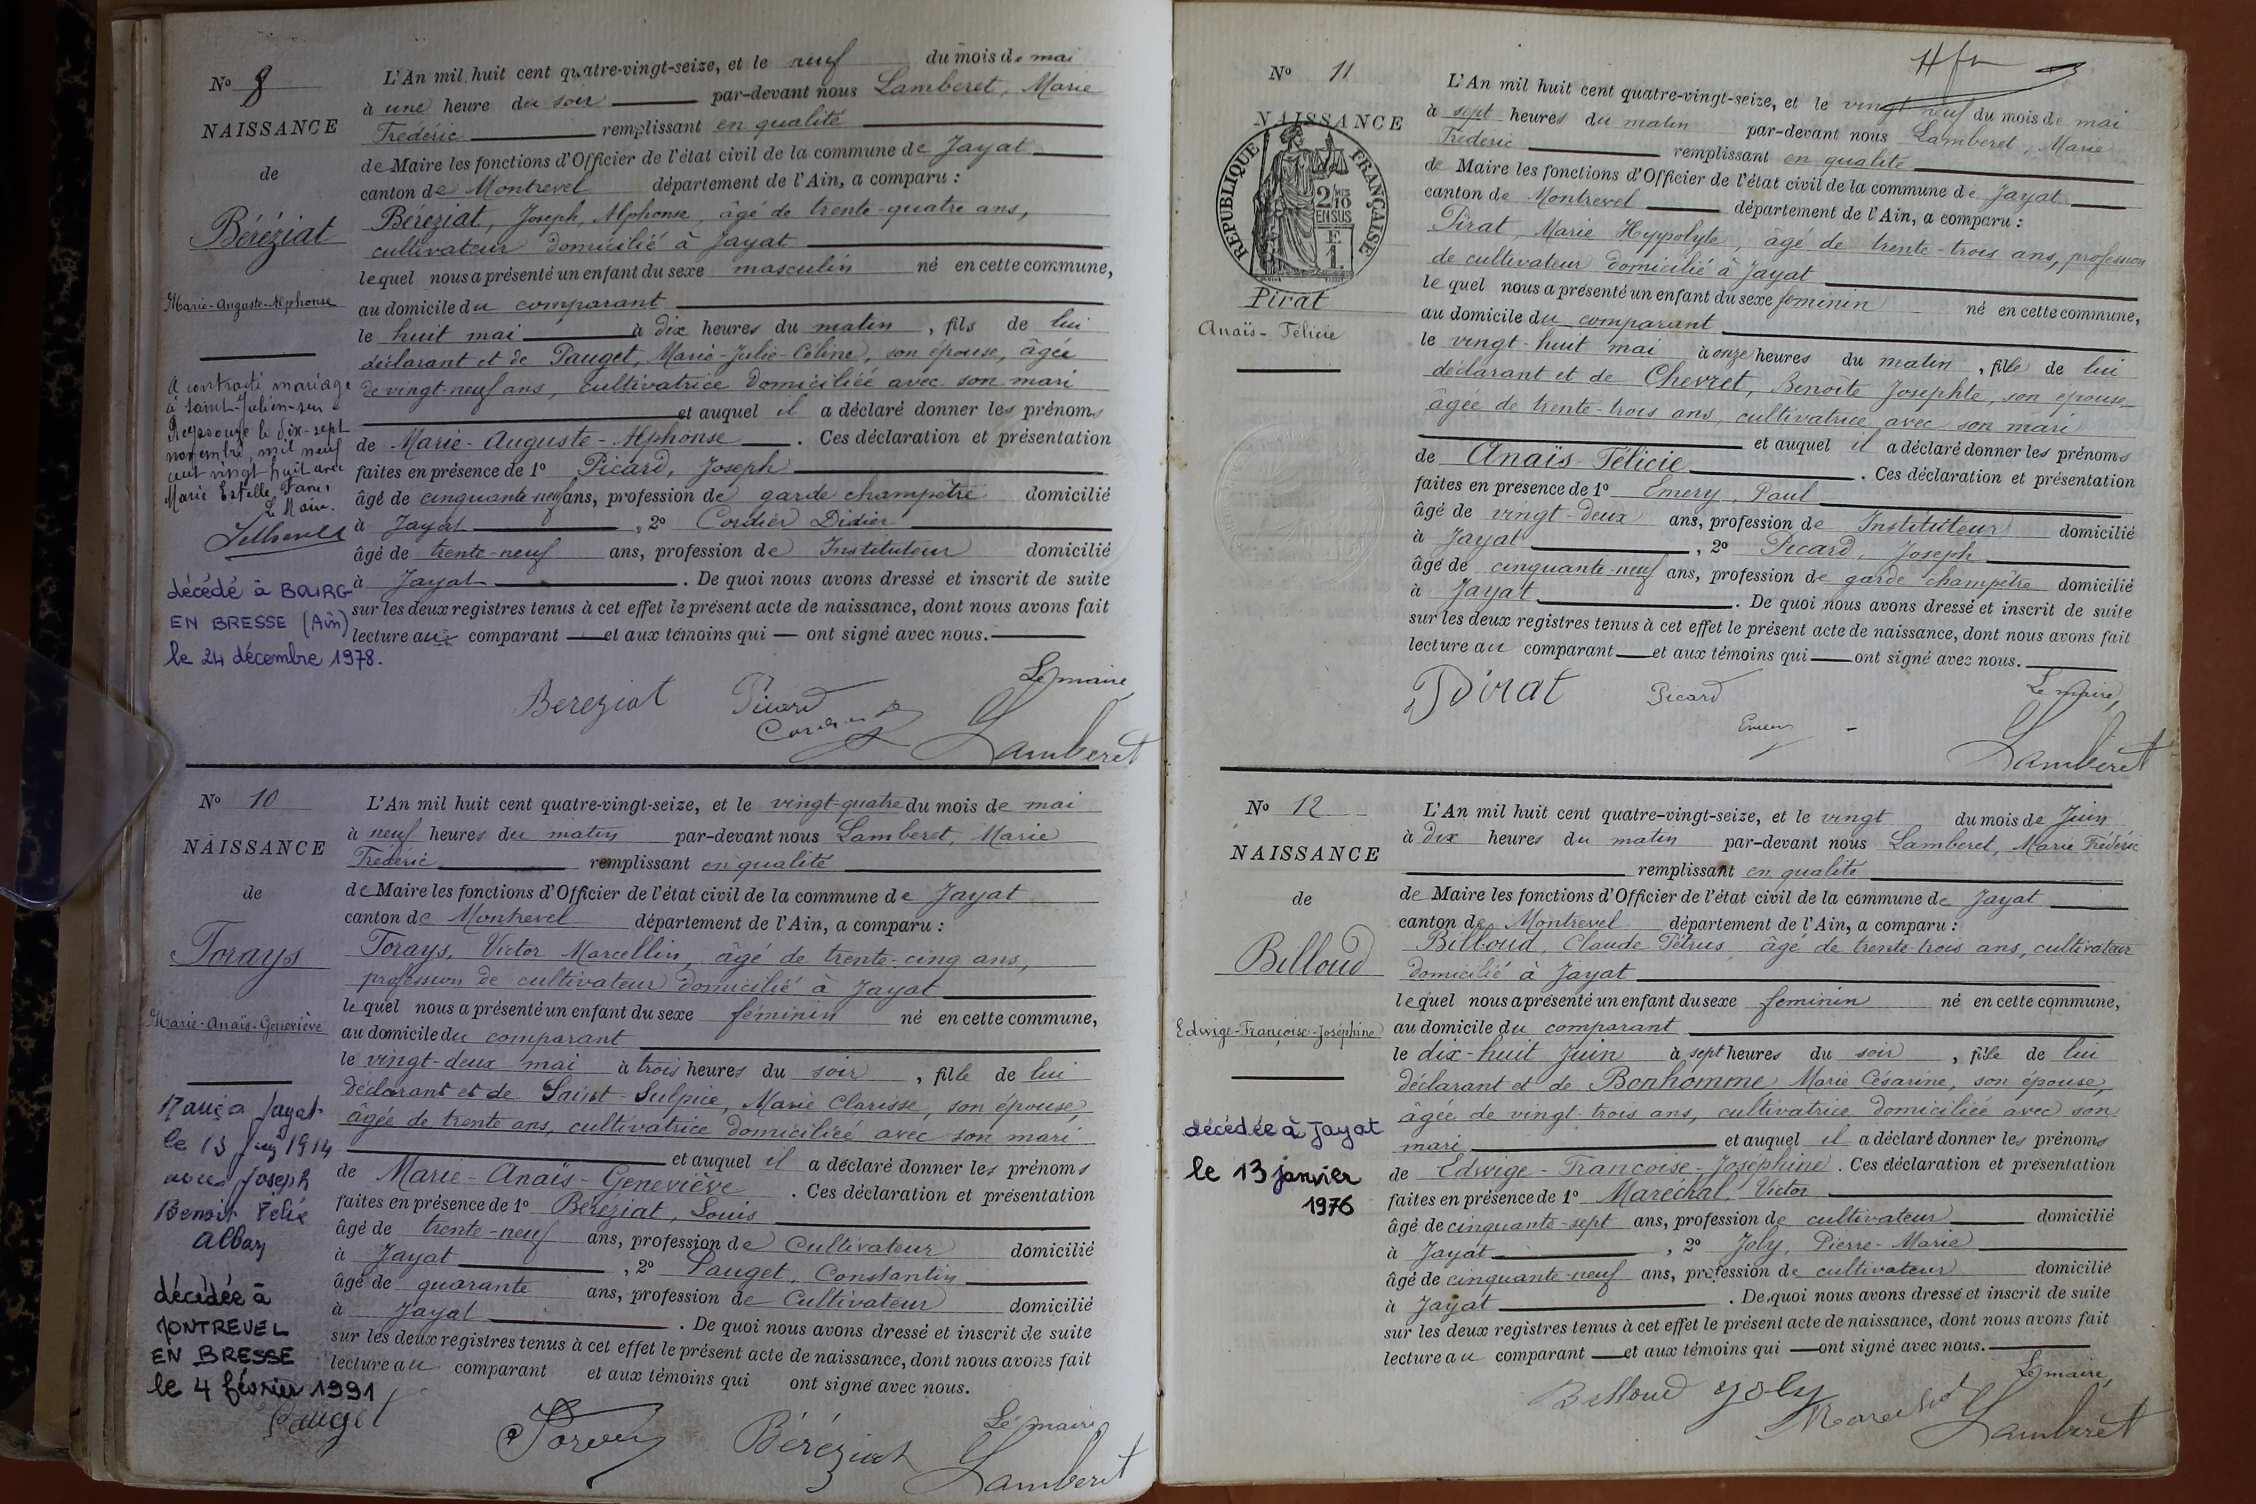 No 8
NAISSANCE
de
Béréziat
Marie-Auguste-Alphonse
A contracté mariage
à Saint-Julien-sur
Reyssouze le dix-sept
novembre, mil neuf
cent vingt huit avec
Marie Estelle
Le Maire.
décédé à BOURG
EN BRESSE (Ain)
le 24 décembre 1978.
L'An mil huit cent quatre-vingt-seize, et le neuf du mois de mai
à une heure du soir par-devant nous Lamberet, Marie
Frédéric remplissant en qualité
de Maire les fonctions d'Officier de l'état civil de la commune de Jayat
canton de Montrevel département de l'Ain, a comparu :
Béréziat, Joseph, Alphonse, âgé de trente-quatre ans,
cultivateur domicilié à Jayat
lequel nous a présenté un enfant du sexe masculin né en cette commune,
au domicile du comparant
le huit mai à dix heures du matin, fils de lui
déclarant et de Pauget, Marie-Julie-Céline, son épouse, âgée
de vingt-neuf ans, cultivatrice domiciliée avec son mari
et auquel il a déclaré donner les prénoms
de Marie-Auguste-Alphonse. Ces déclaration et présentation
faites en présence de 1º Picard, Joseph
âgé de cinquante neuf ans, profession de garde champêtre domicilié
à Jayat, 2º Cordier Didier
âgé de trente-neuf ans, profession de Instituteur domicilié
à Jayat. De quoi nous avons dressé et inscrit de suite
sur les deux registres tenus à cet effet le présent acte de naissance, dont nous avons fait
lecture au comparant et aux témoins qui ont signé avec nous.
Le maire
Bereziat Picard
Lamberet
No 10
NAISSANCE
de
Torays
Marie-Anaïs-Geneviève
Mariée à Jayat
le 13 1914
avec Joseph
Benoit Félix
Alban
décédée à
MONTREVEL
EN BRESSE
le 4 février 1991
L'An mil huit cent quatre-vingt-seize, et le vingt-quatre du mois de mai
à neuf heures du matin par-devant nous Lamberet, Marie
Frédéric remplissant en qualité
de Maire les fonctions d'Officier de l'état civil de la commune de Jayat
canton de Montrevel département de l'Ain, a comparu :
Torays, Victor Marcellin, âgé de trente-cinq ans,
profession de cultivateur domicilié à Jayat
lequel nous a présenté un enfant du sexe féminin né en cette commune,
au domicile du comparant
le vingt-deux mai à trois heures du soir, fille de lui
déclarant et de Saint-Sulpice, Marie Clarisse, son épouse,
âgée de trente ans, cultivatrice domiciliée avec son mari
et auquel il a déclaré donner les prénoms
de Marie-Anaïs-Geneviève. Ces déclaration et présentation
faites en présence de 1º Béréziat, Louis
âgé de trente-neuf ans, profession de Cultivateur domicilié
à Jayat, 2º Pauget, Constantin
âgé de quarante ans, profession de Cultivateur domicilié
à Jayat. De quoi nous avons dressé et inscrit de suite
sur les deux registres tenus à cet effet le présent acte de naissance, dont nous avons fait
lecture au comparant et aux témoins qui ont signé avec nous.
Le maire
Pauget Béréziat Lamberet
No 11
NAISSANCE
RÉPUBLIQUE FRANÇAISE
2/10
EN SUS
F.
1.
Pirat
Anaïs-Félicie
L'An mil huit cent quatre-vingt-seize, et le vingt neuf du mois de mai
à sept heures du matin par-devant nous Lamberet, Marie
Frédéric remplissant en qualité
de Maire les fonctions d'Officier de l'état civil de la commune de Jayat
canton de Montrevel département de l'Ain, a comparu :
Pirat, Marie Hyppolyte, âgé de trente-trois ans, profession
de cultivateur domicilié à Jayat
lequel nous a présenté un enfant du sexe féminin né en cette commune,
au domicile du comparant
le vingt-huit mai à onze heures du matin, fille de lui
déclarant et de Chevret, Benoite Josephte, son épouse,
âgée de trente-trois ans, cultivatrice avec son mari
et auquel il a déclaré donner les prénoms
de Anaïs-Félicie. Ces déclaration et présentation
faites en présence de 1º Emery, Paul
âgé de vingt-deux ans, profession de Instituteur domicilié
à Jayat, 2º Picard, Joseph
âgé de cinquante-neuf ans, profession de garde champêtre domicilié
à Jayat. De quoi nous avons dressé et inscrit de suite
sur les deux registres tenus à cet effet le présent acte de naissance, dont nous avons fait
lecture au comparant et aux témoins qui ont signé avec nous.
Le maire,
Pirat Picard
Emery
Lamberet
No 12
NAISSANCE
de
Billoud
Edwige-Françoise-Joséphine
décédée à Jayat
le 13 janvier
1976
L'An mil huit cent quatre-vingt-seize, et le vingt du mois de Juin
à dix heures du matin par-devant nous Lamberet, Marie Frédéric
remplissant en qualité
de Maire les fonctions d'Officier de l'état civil de la commune de Jayat
canton de Montrevel département de l'Ain, a comparu :
Billoud, Claude Pétrus, âgé de trente-trois ans, cultivateur
domicilié à Jayat
lequel nous a présenté un enfant du sexe féminin né en cette commune,
au domicile du comparant
le dix-huit Juin à sept heures du soir, fille de lui
déclarant et de Bonhomme Marie Césarine, son épouse,
âgée de vingt-trois ans, cultivatrice domiciliée avec son
mari et auquel il a déclaré donner les prénoms
de Edwige-Françoise-Joséphine. Ces déclaration et présentation
faites en présence de 1º Maréchal, Victor
âgé de cinquante-sept ans, profession de cultivateur domicilié
à Jayat, 2º Joly, Pierre-Marie
âgé de cinquante-neuf ans, profession de cultivateur domicilié
à Jayat. De quoi nous avons dressé et inscrit de suite
sur les deux registres tenus à cet effet le présent acte de naissance, dont nous avons fait
lecture au comparant et aux témoins qui ont signé avec nous.
Le maire,
Billoud Joly Marechal Lamberet